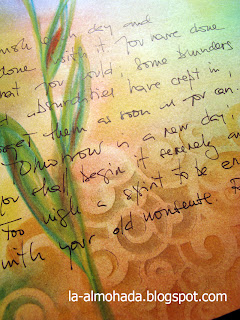 each day and
done with it. You have done
what you could; some blunders
and absurdities have crept in;
forget them as soon as you can.
Tomorrow is a new day;
you shall begin it serenely and
too high a spirit to be en
with your old nonsense.
la-almohada.blogspot.com